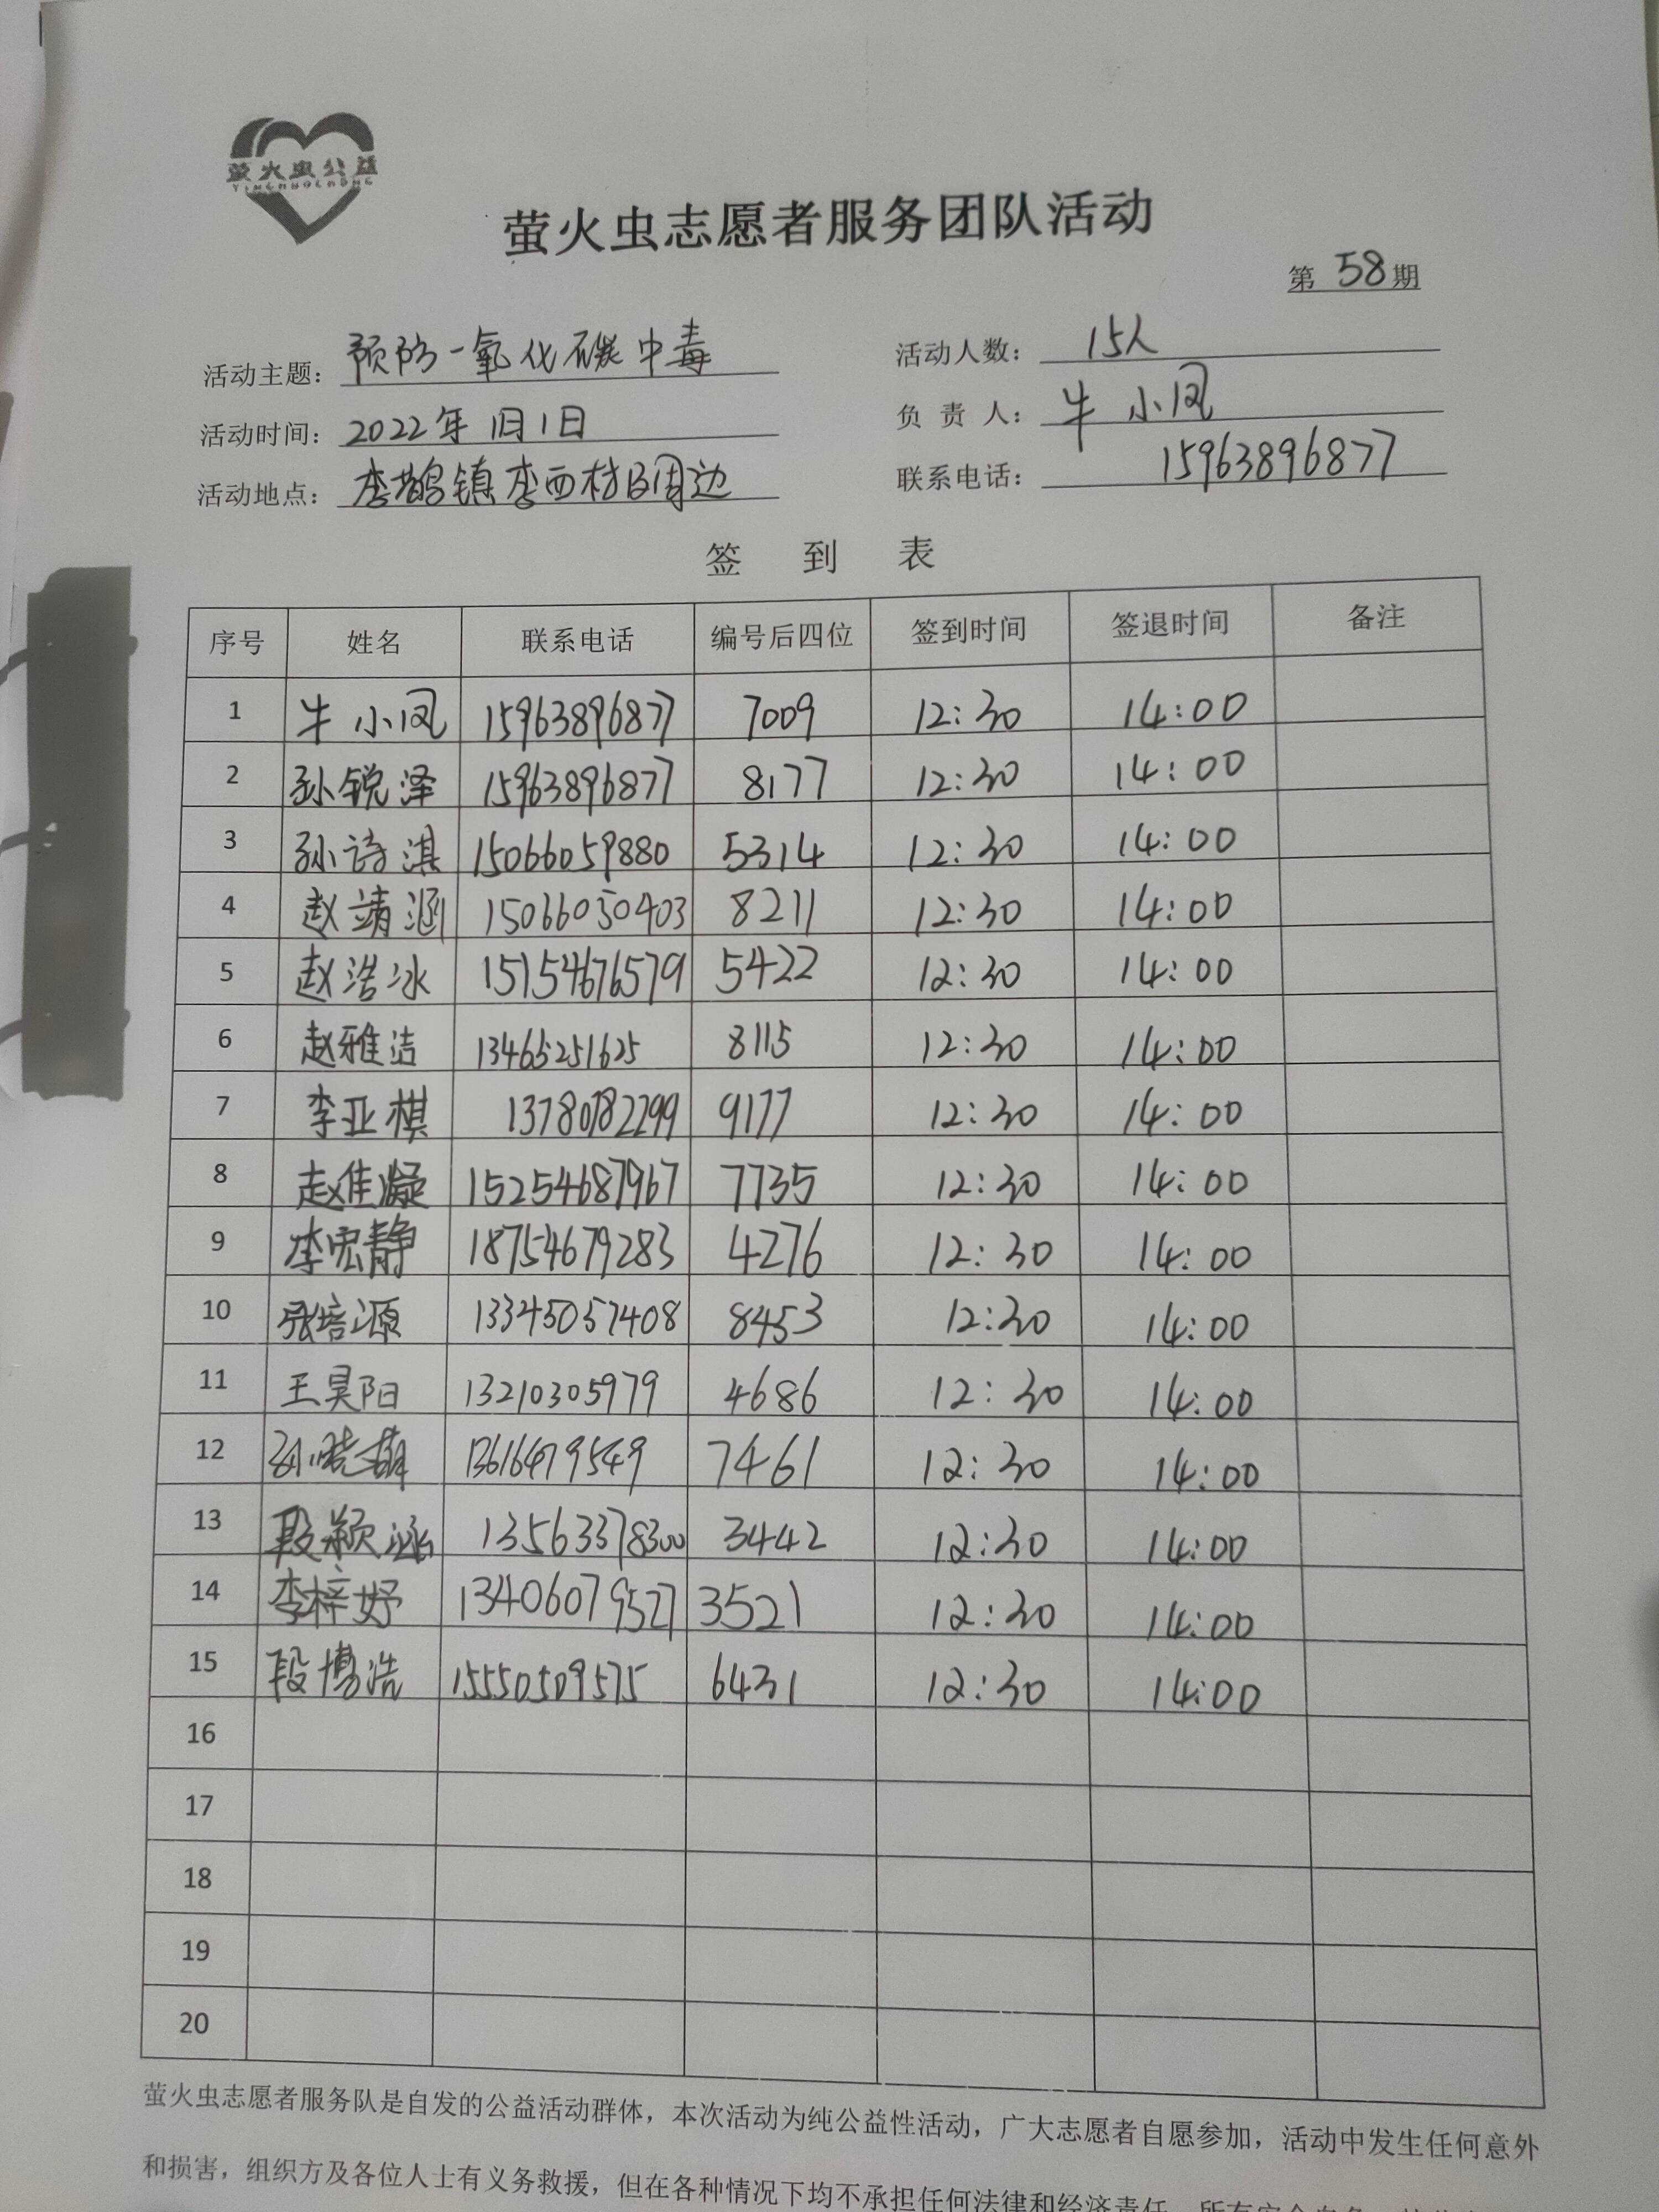 萤火虫公益
YINGHUOCHONG
萤火虫志愿者服务团队活动
第 58 期
活动主题: 预防一氧化碳中毒 活动人数: 15人
活动时间: 2022年1月1日 负责人: 牛小凤
活动地点: 李鹊镇李西村及周边 联系电话: 15963896877
签到表
序号 姓名 联系电话 编号后四位 签到时间 签退时间 备注
1 牛小凤 15963896877 7009 12:30 14:00
2 孙锐泽 15963896877 8177 12:30 14:00
3 孙诗淇 15066059880 5314 12:30 14:00
4 赵靖涵 15066050403 8211 12:30 14:00
5 赵浩冰 15154676579 5422 12:30 14:00
6 赵雅洁 13465251625 8115 12:30 14:00
7 李亚棋 13780782299 9177 12:30 14:00
8 赵佳凝 15254687967 7735 12:30 14:00
9 李宏静 18754679283 4276 12:30 14:00
10 张培源 13345057408 8453 12:30 14:00
11 王昊阳 13210305979 4686 12:30 14:00
12 孙晓萌 13616479549 7461 12:30 14:00
13 段颖涵 13563378300 3442 12:30 14:00
14 李梓妤 13406079527 3521 12:30 14:00
15 段博浩 15550509575 6431 12:30 14:00
16
17
18
19
20
萤火虫志愿者服务队是自发的公益活动群体，本次活动为纯公益性活动，广大志愿者自愿参加，活动中发生任何意外
和损害，组织方及各位人士有义务救援，但在各种情况下均不承担任何法律和经济责任